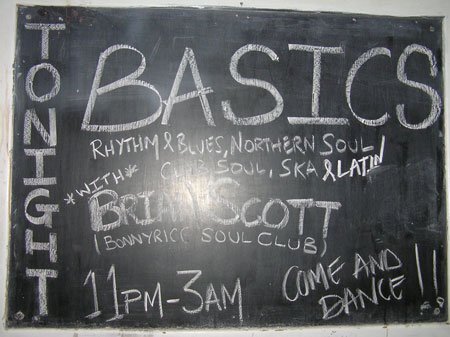 TONIGHT
BASICS
RHYTHM & BLUES, NORTHERN SOUL
CLUB SOUL, SKA & LATIN
*WITH*
BRIAN SCOTT
(BONNYRIGG SOUL CLUB)
11PM-3AM
COME AND
DANCE!!